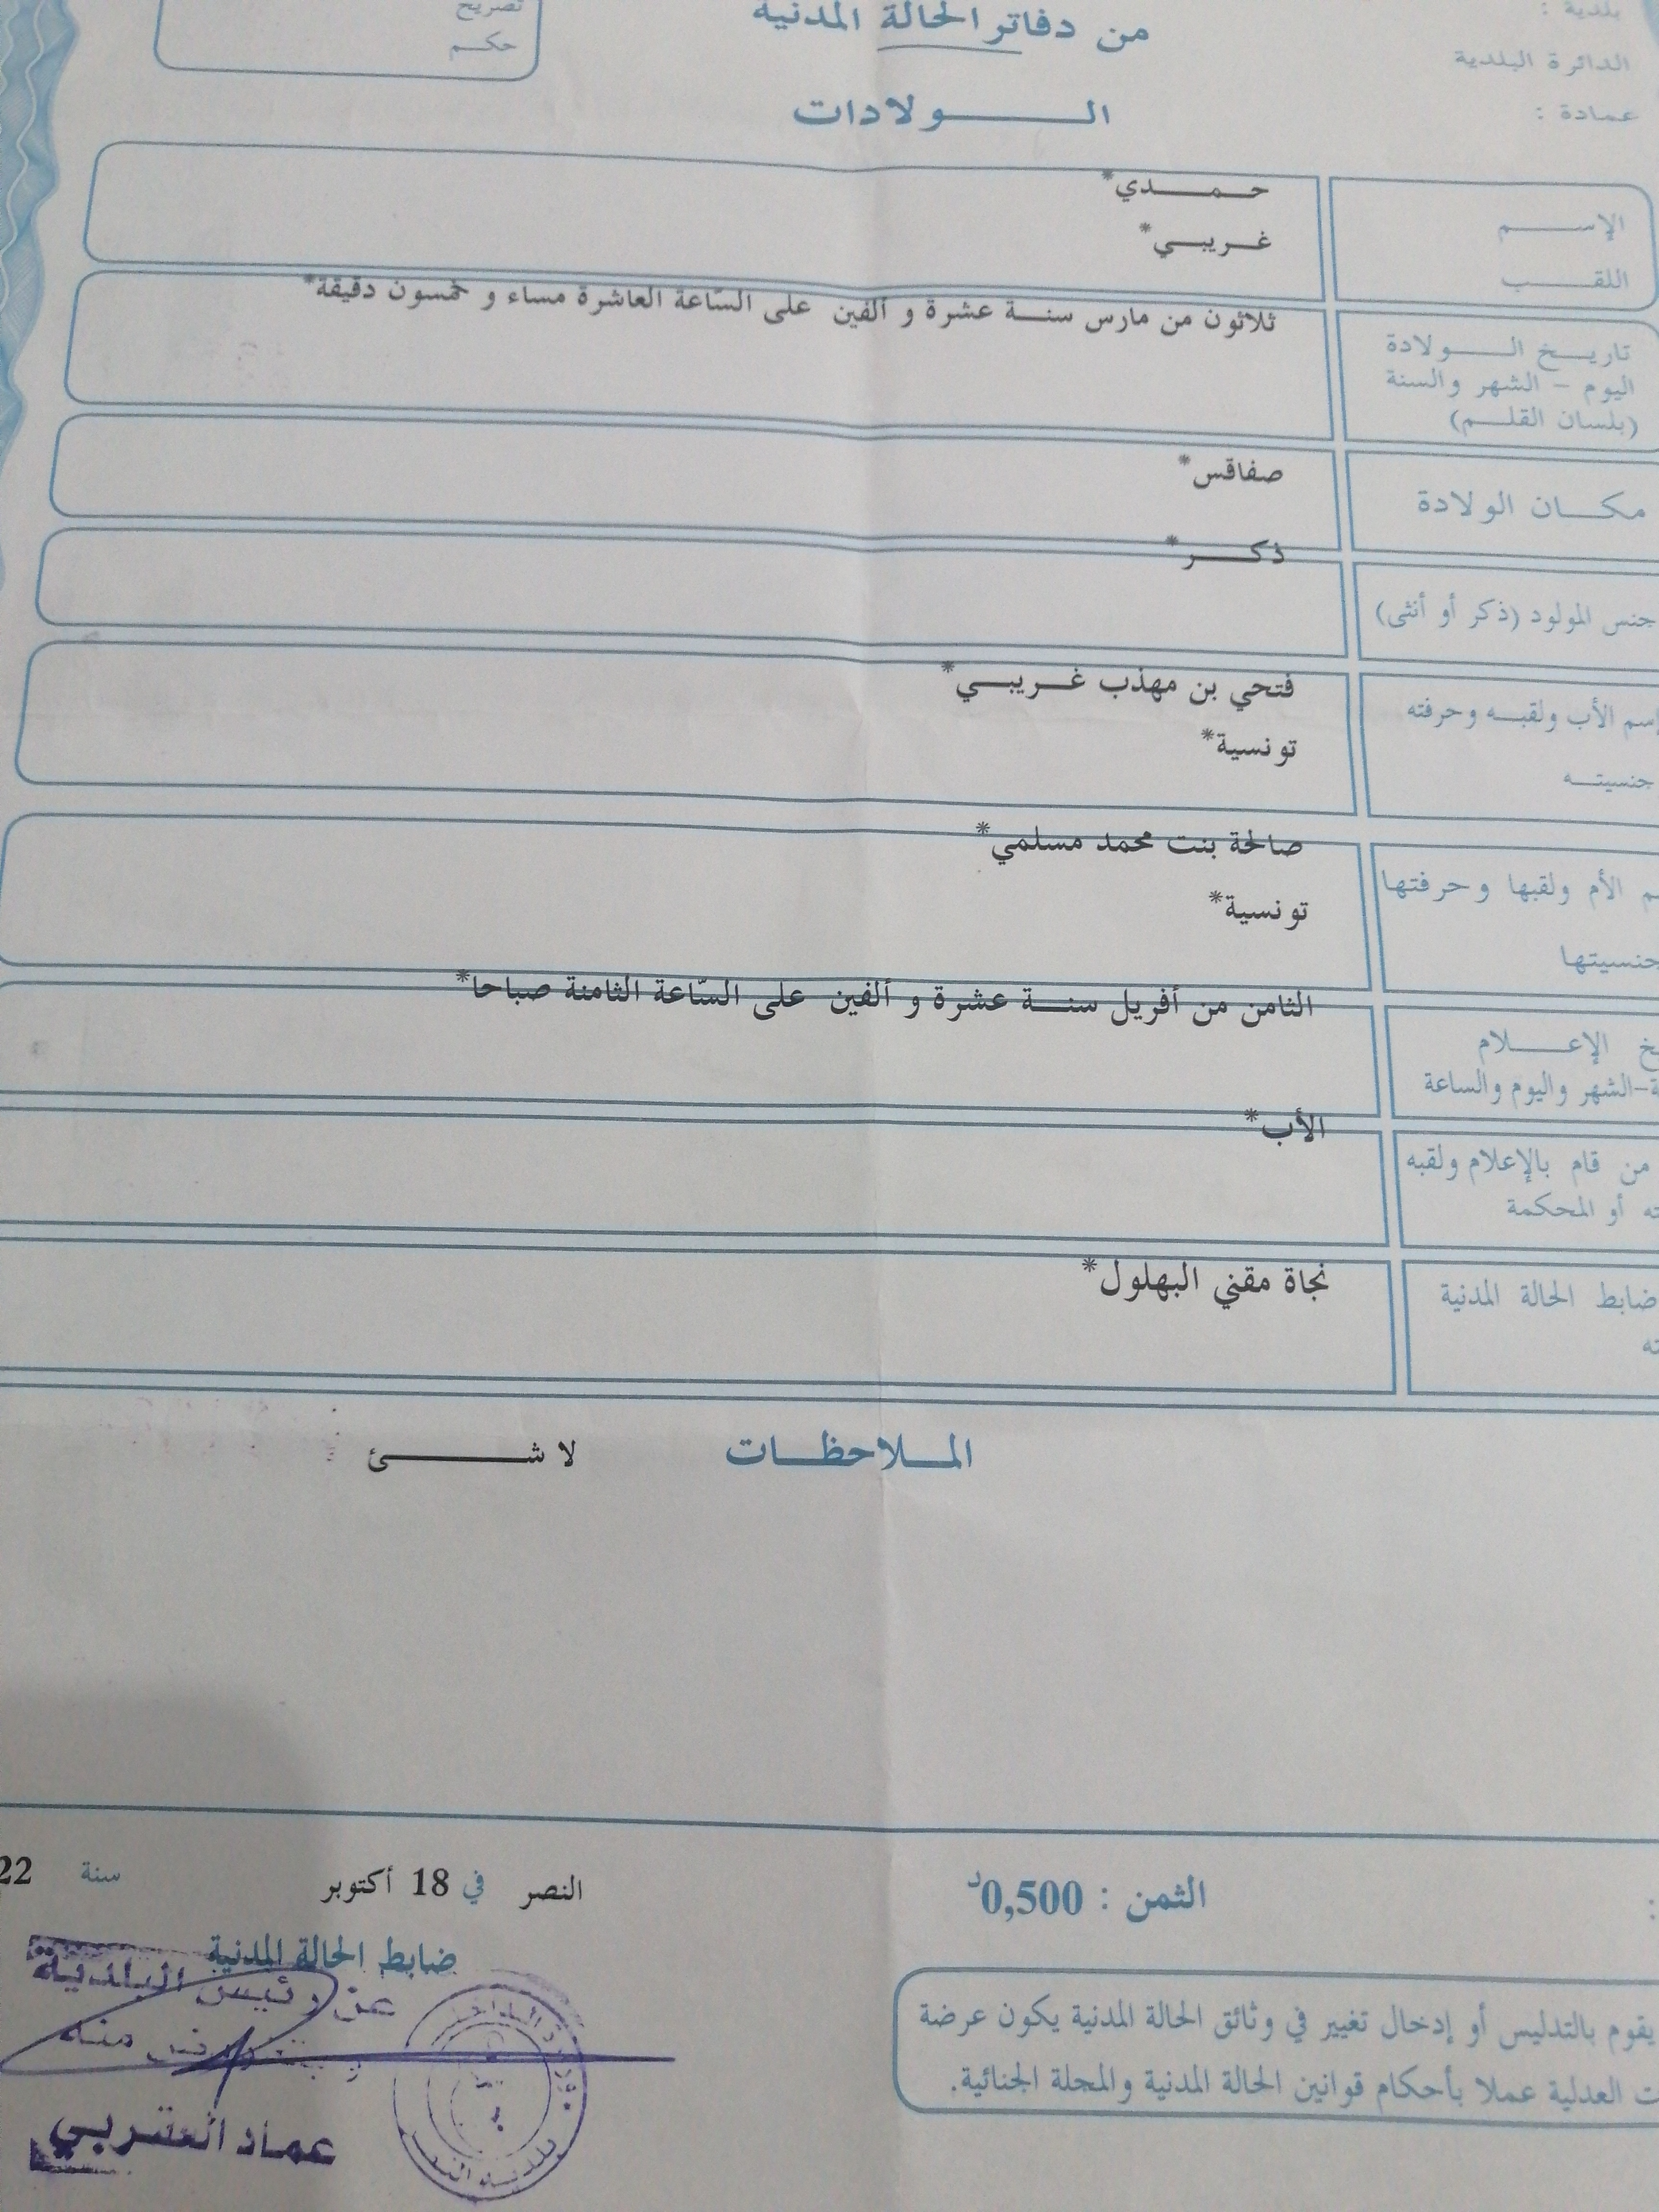 من دفاتر الحالة المدنية
بلدية :
الدائرة البلدية
عمادة :
تصريح
حكم
الولادات
الإسم
حمدي*
اللقب
غريبي*
تاريخ الولادة
اليوم - الشهر والسنة
(بلسان القلم)
ثلاثون من مارس سنة عشرة و ألفين على السّاعة العاشرة مساء و خمسون دقيقة*
مكان الولادة
صفاقس*
جنس المولود (ذكر أو أنثى)
ذكر*
إسم الأب ولقبه وحرفته
فتحي بن مهذب غريبي*
جنسيته
تونسية*
م الأم ولقبها وحرفتها
صالحة بنت محمد مسلمي*
جنسيتها
تونسية*
خ الإعلام
ة-الشهر واليوم والساعة
الثامن من أفريل سنة عشرة و ألفين على السّاعة الثامنة صباحا*
من قام بالإعلام ولقبه
ته أو المحكمة
الأب*
ضابط الحالة المدنية
ته
نجاة مقني البهلول*
الملاحظات
لا شئ
الثمن : 0,500د
النصر في 18 أكتوبر سنة 22
ضابط الحالة المدنية
عن رئيس البلدية
منه
عماد العقربي
يقوم بالتدليس أو إدخال تغيير في وثائق الحالة المدنية يكون عرضة
ت العدلية عملا بأحكام قوانين الحالة المدنية والمجلة الجنائية.